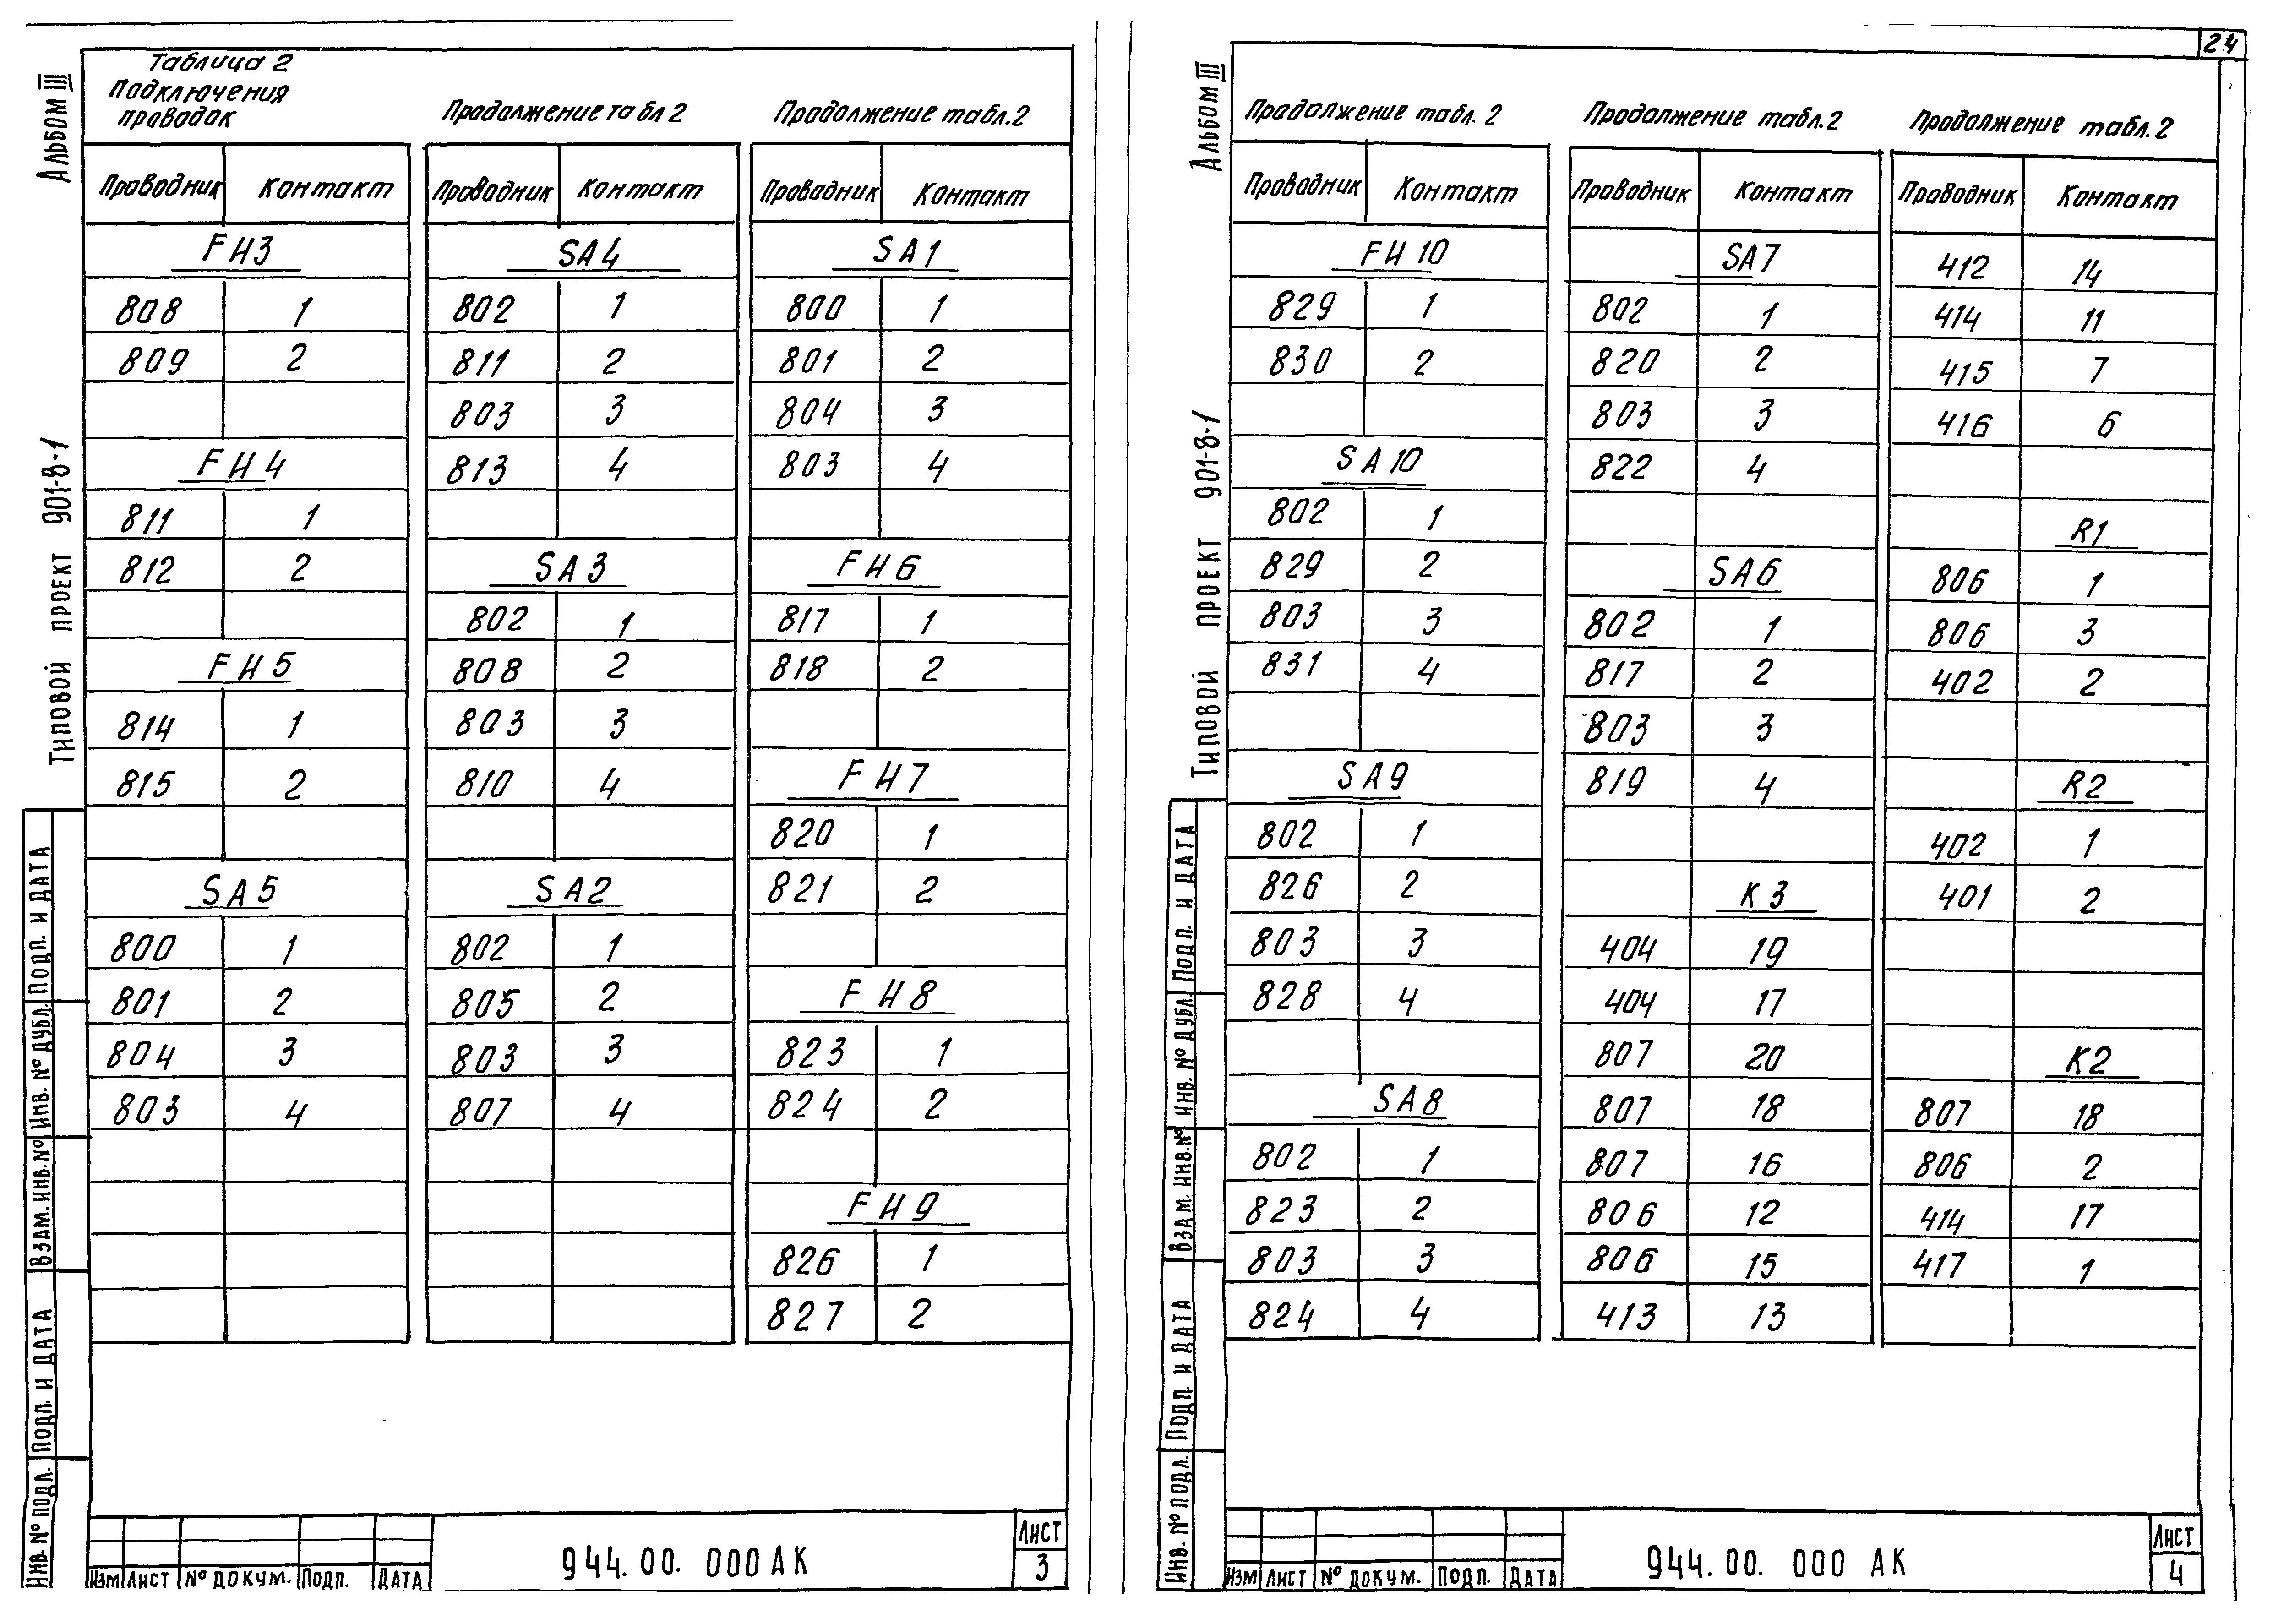 Альбом III
Типовой проект 901-8-1
Таблица 2
Подключения
проводок
Проводник Контакт
FH3
808 1
809 2
FH4
811 1
812 2
FH5
814 1
815 2
SA5
800 1
801 2
804 3
803 4
Продолжение табл 2
Проводник Контакт
SA4
802 1
811 2
803 3
813 4
SA3
802 1
808 2
803 3
810 4
SA2
802 1
805 2
803 3
807 4
Продолжение табл. 2
Проводник Контакт
SA1
800 1
801 2
804 3
803 4
FH6
817 1
818 2
FH7
820 1
821 2
FH8
823 1
824 2
FH9
826 1
827 2
Инв. № подл. Подп. и дата Взам. инв. № Инв. № дубл. Подп. и дата
Изм Лист № докум. Подп. Дата
944.00.000 АК
Лист
3
24
Альбом III
Типовой проект 901-8-1
Продолжение табл. 2
Проводник Контакт
FH10
829 1
830 2
SA10
802 1
829 2
803 3
831 4
SA9
802 1
826 2
803 3
828 4
SA8
802 1
823 2
803 3
824 4
Продолжение табл. 2
Проводник Контакт
SA7
802 1
820 2
803 3
822 4
SA6
802 1
817 2
803 3
819 4
K3
404 19
404 17
807 20
807 18
807 16
806 12
806 15
413 13
Продолжение табл. 2
Проводник Контакт
412 14
414 11
415 7
416 6
R1
806 1
806 3
402 2
R2
402 1
401 2
K2
807 18
806 2
414 17
417 1
Инв. № подл. Подп. и дата Взам. инв. № Инв. № дубл. Подп. и дата
Изм Лист № докум. Подп. Дата
944.00.000 АК
Лист
4